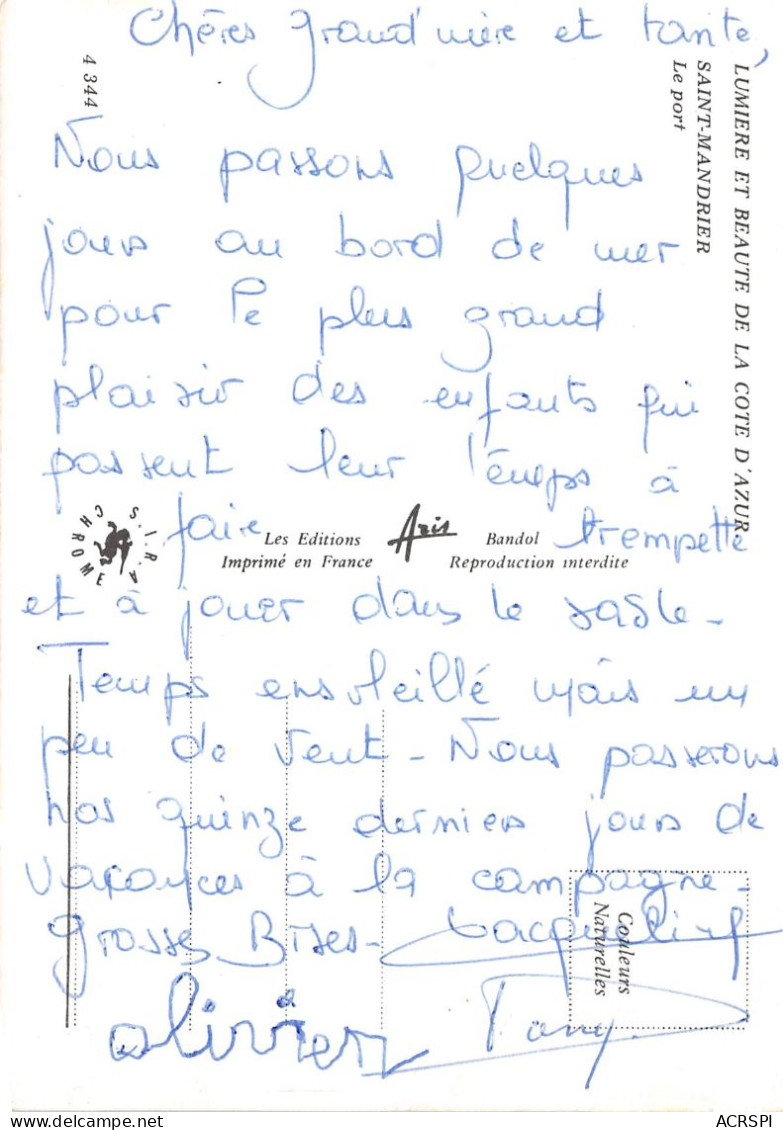 Chères grand'mère et tante,
Nous passons quelques
jours au bord de mer
pour le plus grand
plaisir des enfants qui
passent leur temps à
faire trempette
et à jouer dans le sable-
Temps ensoleillé mais un
peu de vent- Nous passerons
nos quinze derniers jours de
vacances à la campagne-
Grosses Bises- Jacqueline
olivier
LUMIERE ET BEAUTE DE LA COTE D'AZUR
SAINT-MANDRIER
Le port
4 344
S.I.R.A.
CHROME
Les Editions Aris Bandol
Imprimé en France Reproduction interdite
Couleurs
Naturelles
ACRSPI